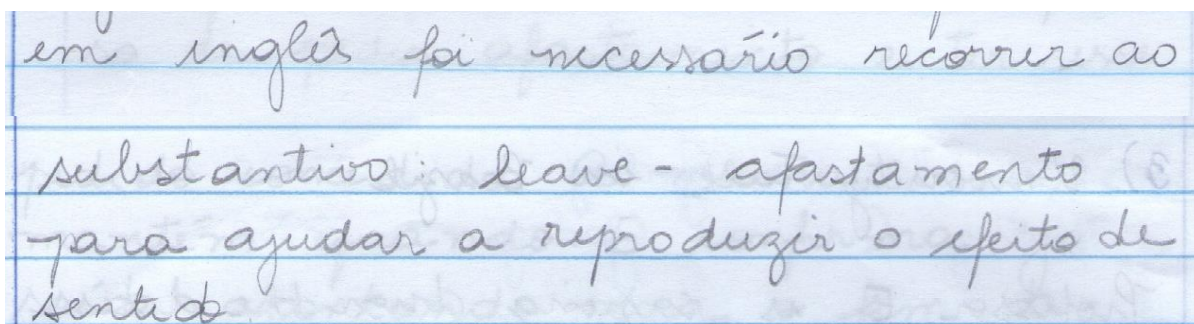 em inglês foi necessário recorrer ao
substantivo: leave - afastamento
para ajudar a reproduzir o efeito de
sentido.